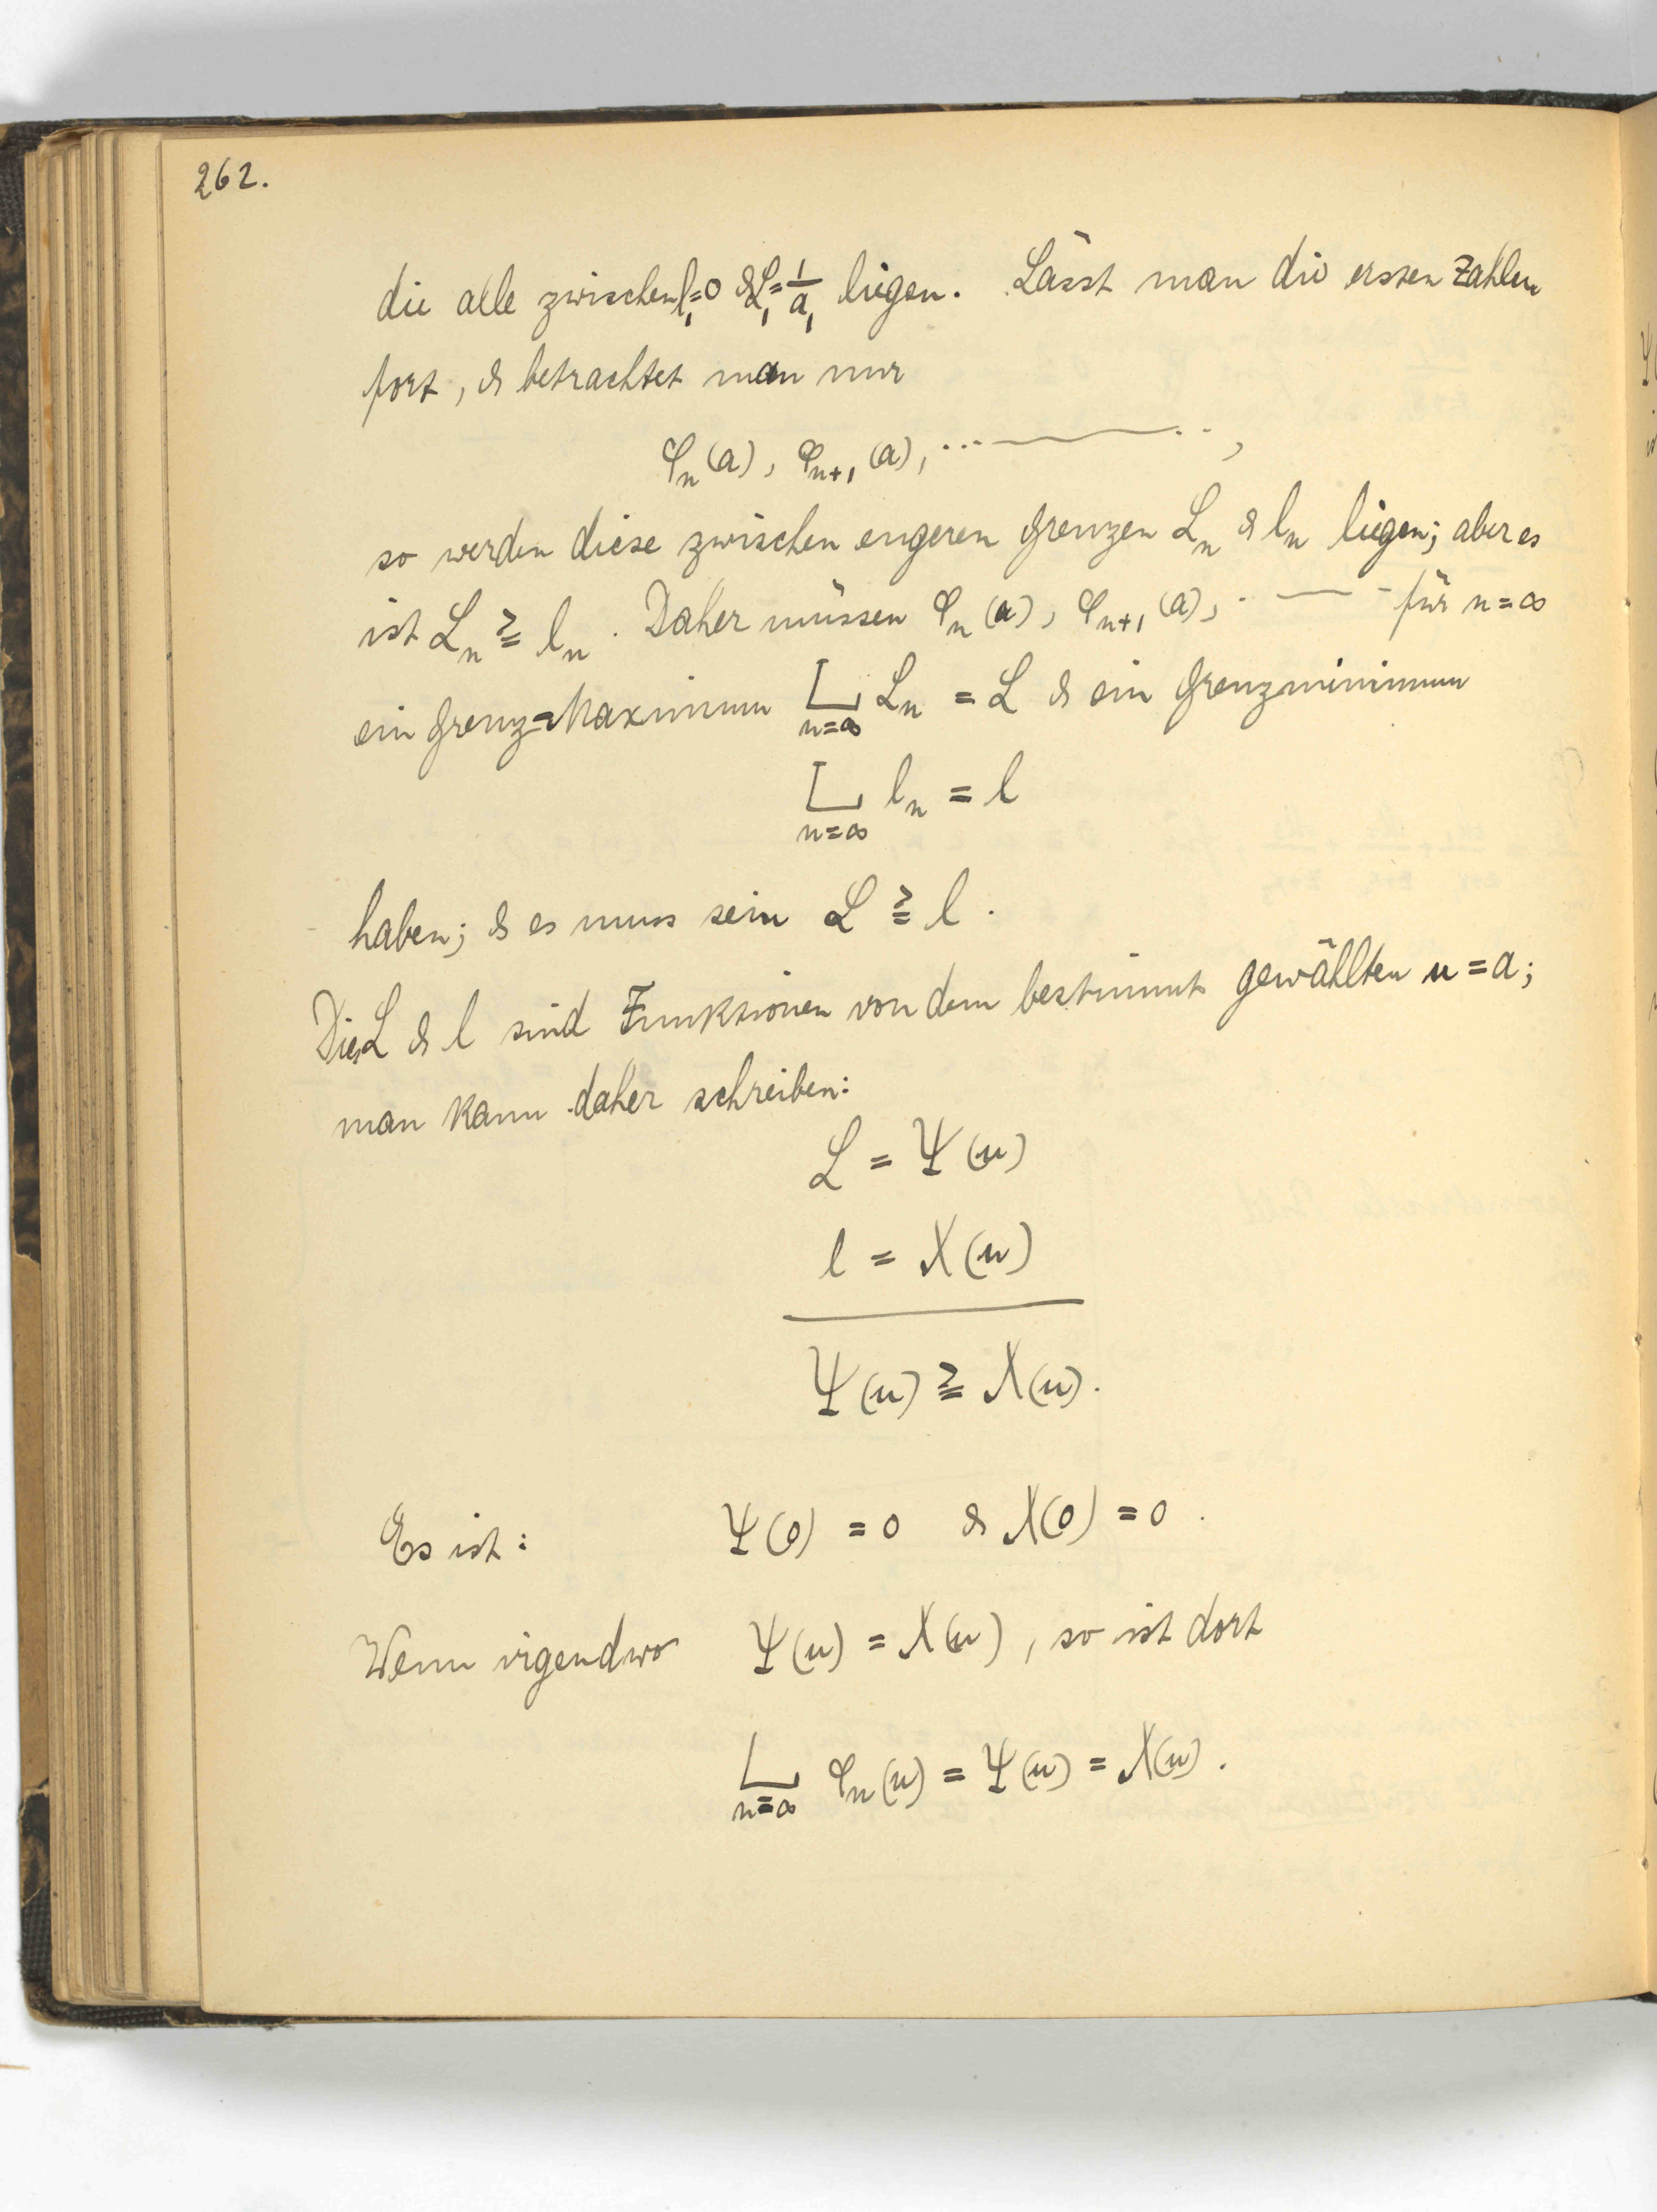 262.
die alle zwischen l₁=0 & L₁=1/a₁ liegen. Lässt man die ersten Zahlen
fort, & betrachtet man nur
φₙ(a), φₙ₊₁(a), ... — ..,
so werden diese zwischen engeren Grenzen Lₙ & lₙ liegen; aber es
ist Lₙ ≧ lₙ. Daher müssen φₙ(a), φₙ₊₁(a), · — - für n=∞
ein Grenz=Maximum L Lₙ = L & ein Grenzminimum
n=∞
L lₙ = l
n=∞
haben; & es muss sein L ≧ l.
Die L & l sind Funktionen von dem bestimmt gewählten u=a;
man kann daher schreiben:
L = Ψ(u)
l = χ(u)
Ψ(u) ≧ χ(u).
Es ist: Ψ(0) = 0 & χ(0) = 0.
Wenn irgendwo Ψ(u) = χ(u), so ist dort
L φₙ(u) = Ψ(u) = χ(u).
n=∞